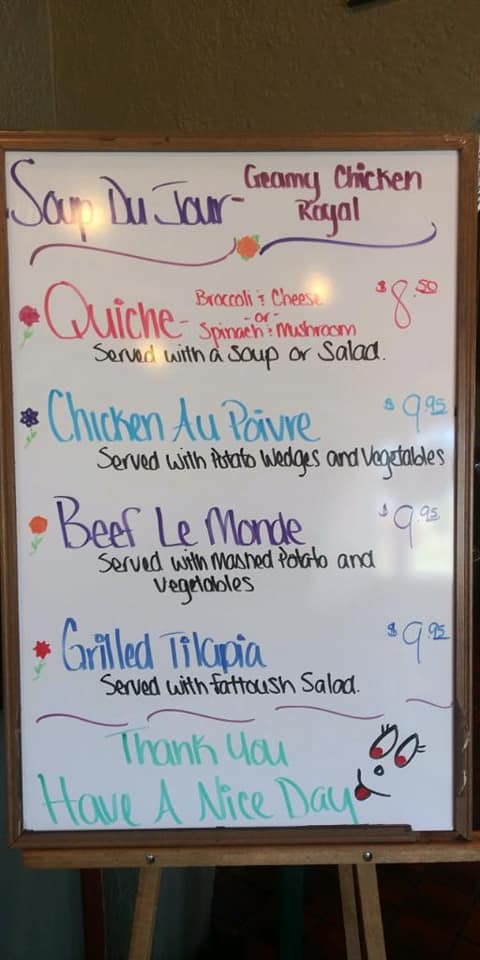 Soup Du Jour - Creamy Chicken
Royal
Quiche - Broccoli & Cheese $8.50
- or -
Spinach & Mushroom
Served with a Soup or Salad.
Chicken Au Poivre $9.95
Served with Potato Wedges and Vegetables
Beef Le Monde $9.95
Served with Mashed Potato and
Vegetables
Grilled Tilapia $9.95
Served with Fattoush Salad.
Thank You
Have A Nice Day